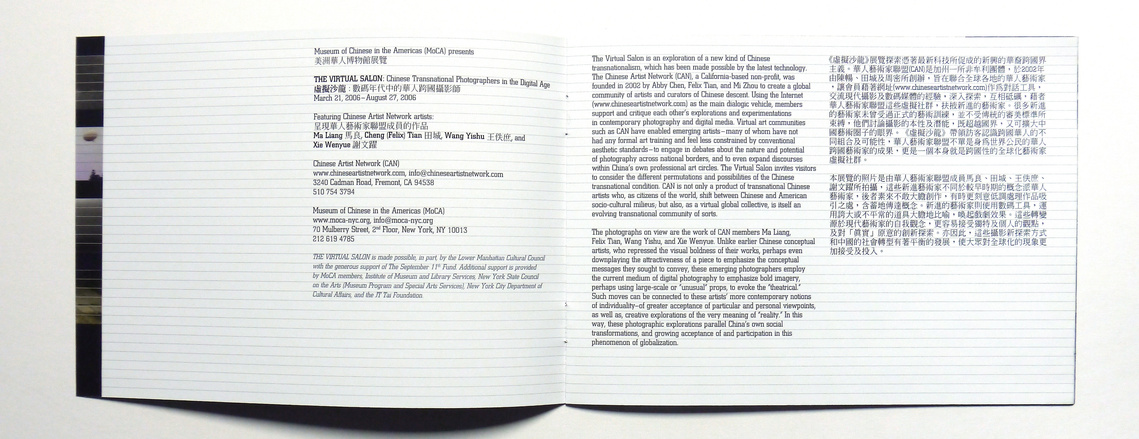 Museum of Chinese in the Americas (MoCA) presents
美洲華人博物館展覽
THE VIRTUAL SALON: Chinese Transnational Photographers in the Digital Age
虛擬沙龍：數碼年代中的華人跨國攝影師
March 21, 2006–August 27, 2006
Featuring Chinese Artist Network artists:
呈現華人藝術家聯盟成員的作品
Ma Liang 馬良, Cheng (Felix) Tian 田城, Wang Yishu 王佚庶, and
Xie Wenyue 謝文躍
Chinese Artist Network (CAN)
www.chineseartistnetwork.com, info@chineseartistnetwork.com
3240 Cadman Road, Fremont, CA 94538
510 754 3794
Museum of Chinese in the Americas (MoCA)
www.moca-nyc.org, info@moca-nyc.org
70 Mulberry Street, 2nd Floor, New York, NY 10013
212 619 4785
THE VIRTUAL SALON is made possible, in part, by the Lower Manhattan Cultural Council
with the generous support of The September 11th Fund. Additional support is provided
by MoCA members, Institute of Museum and Library Services, New York State Council
on the Arts (Museum Program and Special Arts Services), New York City Department of
Cultural Affairs, and the IT Tai Foundation.
The Virtual Salon is an exploration of a new kind of Chinese
transnationalism, which has been made possible by the latest technology.
The Chinese Artist Network (CAN), a California-based non-profit, was
founded in 2002 by Abby Chen, Felix Tian, and Mi Zhou to create a global
community of artists and curators of Chinese descent. Using the Internet
(www.chineseartistnetwork.com) as the main dialogic vehicle, members
support and critique each other's explorations and experimentations
in contemporary photography and digital media. Virtual art communities
such as CAN have enabled emerging artists–many of whom have not
had any formal art training and feel less constrained by conventional
aesthetic standards–to engage in debates about the nature and potential
of photography across national borders, and to even expand discourses
within China's own professional art circles. The Virtual Salon invites visitors
to consider the different permutations and possibilities of the Chinese
transnational condition. CAN is not only a product of transnational Chinese
artists who, as citizens of the world, shift between Chinese and American
socio-cultural milieus; but also, as a virtual global collective, is itself an
evolving transnational community of sorts.
The photographs on view are the work of CAN members Ma Liang,
Felix Tian, Wang Yishu, and Xie Wenyue. Unlike earlier Chinese conceptual
artists, who repressed the visual boldness of their works, perhaps even
downplaying the attractiveness of a piece to emphasize the conceptual
messages they sought to convey, these emerging photographers employ
the current medium of digital photography to emphasize bold imagery,
perhaps using large-scale or "unusual" props, to evoke the "theatrical."
Such moves can be connected to these artists' more contemporary notions
of individuality–of greater acceptance of particular and personal viewpoints,
as well as, creative explorations of the very meaning of "reality." In this
way, these photographic explorations parallel China's own social
transformations, and growing acceptance of and participation in this
phenomenon of globalization.
《虛擬沙龍》展覽探索憑著最新科技所促成的新興的華裔跨國界
主義。華人藝術家聯盟(CAN)是加州一所非牟利團體，於2002年
由陳暢、田城及周密所創辦，旨在聯合全球各地的華人藝術家
，讓會員藉著網址(www.chineseartistnetwork.com)作為對話工具，
交流現代攝影及數碼媒體的經驗，深入探索，互相砥礪。藉者
華人藝術家聯盟這些虛擬社群，扶掖新進的藝術家。很多新進
的藝術家未曾受過正式的藝術訓練，並不受傳統的審美標準所
束縛，他們討論攝影的本性及潛能，既超越國界，又可擴大中
國藝術圈子的眼界。《虛擬沙龍》帶領訪客認識跨國華人的不
同組合及可能性，華人藝術家聯盟不單是身為世界公民的華人
跨國藝術家的成果，更是一個本身就是跨國性的全球化藝術家
虛擬社群。
本展覽的照片是由華人藝術家聯盟成員馬良、田城、王佚庶、
謝文躍所拍攝，這些新進藝術家不同於較早時期的概念派華人
藝術家，後者素來不敢大膽創作，有時更刻意低調處理作品吸
引之處，含蓄地傳達概念。新進的藝術家則使用數碼工具，運
用誇大或不平常的道具大膽地比喻，喚起戲劇效果。這些轉變
源於現代藝術家的自我觀念，更容易接受獨特及個人的觀點，
及對「真實」原意的創新探索。亦因此，這些攝影新探索方式
和中國的社會轉型有著平衡的發展，使大眾對全球化的現象更
加接受及投入。